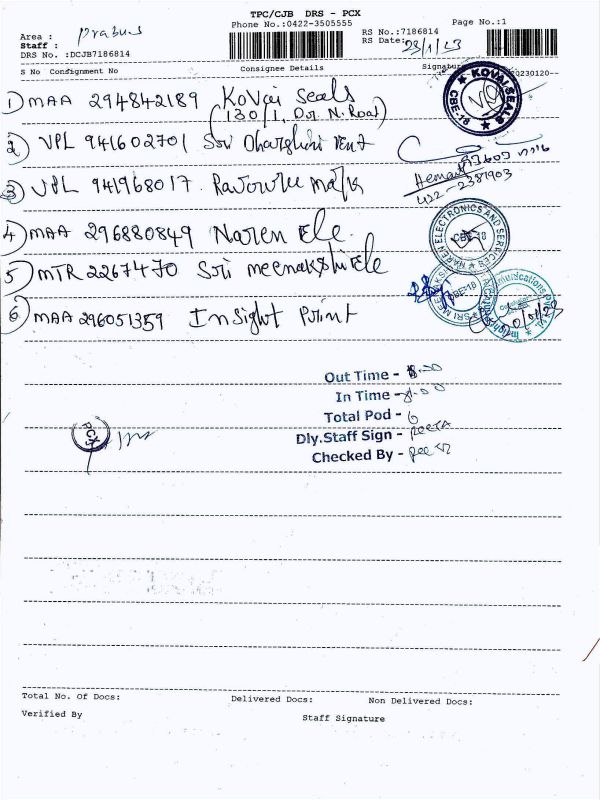 TPC/CJB DRS - PCX
Phone No.:0422-3505555
Page No.:1
Area : Prabus
Staff :
DRS No. :DCJB7186814
RS No.:7186814
RS Date: 23/1/23
S No Consignment No Consignee Details Signature
20230120--
1) MAA 294842189 Kovai Seals
(130/1, Dr. N. Road)
KOVAI SEALS
CBE-18
2) VPL 941602701 Sri Dharshini
3) VPL 941968017
Heman
422-2381903
4) MAA 296880849 Naren Ele.
NAREN ELECTRONICS AND SERVICES
CBE-18
5) MTR 2267470 Sri meenakshi Ele
CBE-18
6) MAA 296051359 Insight Point
Out Time -
In Time -
Total Pod - 6
Dly.Staff Sign - REETA
Checked By -
PCX
Total No. Of Docs: Delivered Docs: Non Delivered Docs:
Verified By
Staff Signature